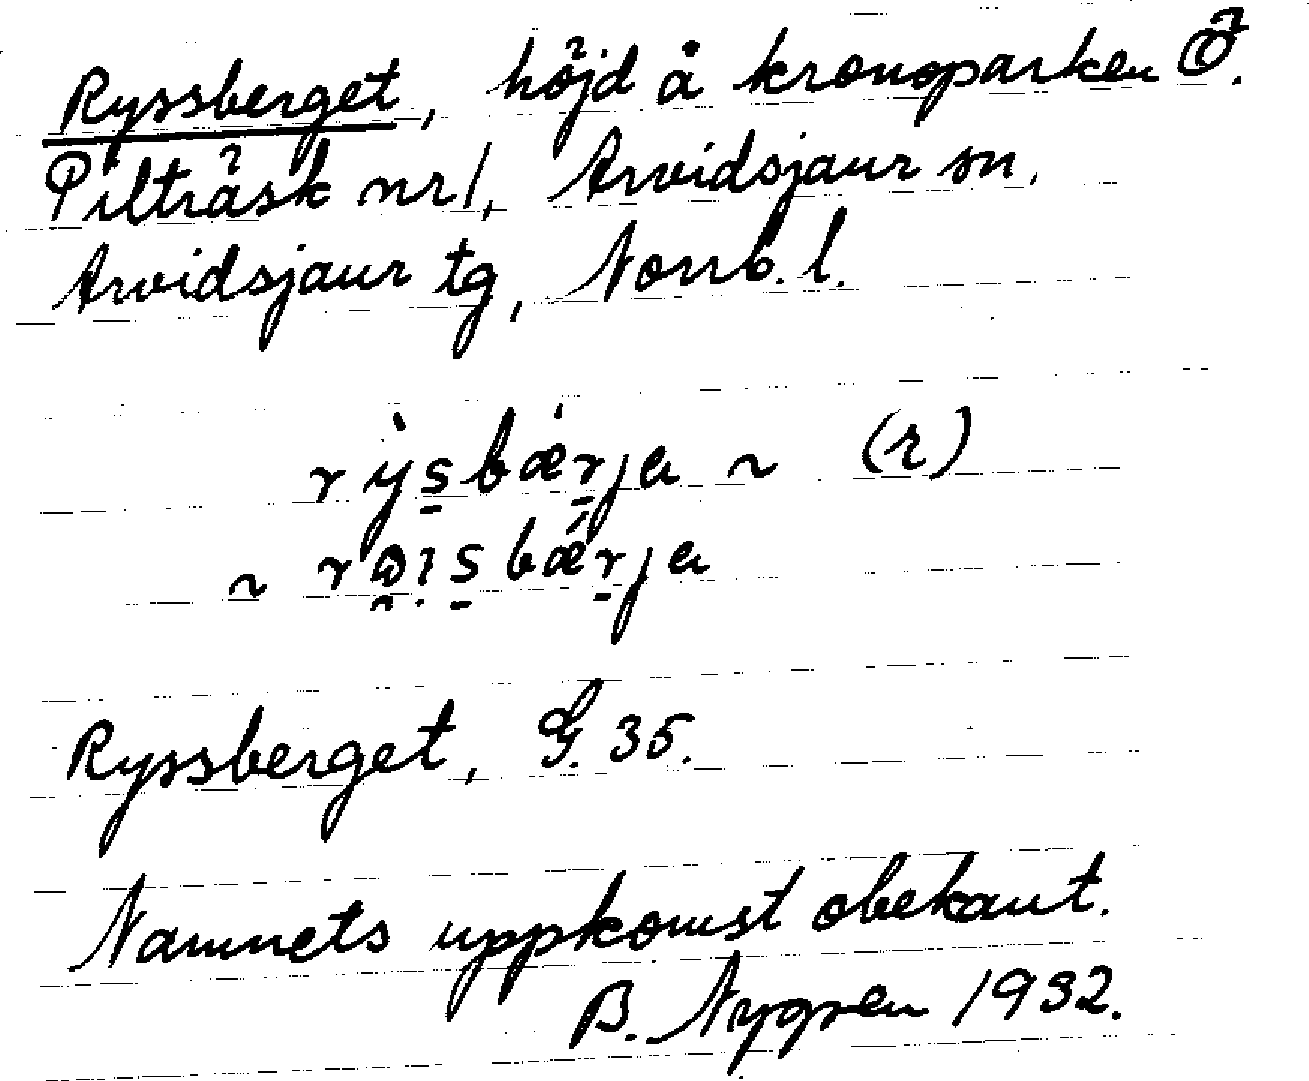 Ryssberget, höjd å kronoparken Ö.
Pilträsk nr 1, Arvidsjaur sn,
Arvidsjaur tg, Norrb. l.
rỳsbærja ~ (r)
~ rəisbærja
Ryssberget, G. 35.
Namnets uppkomst obekant.
B. Nygren 1932.